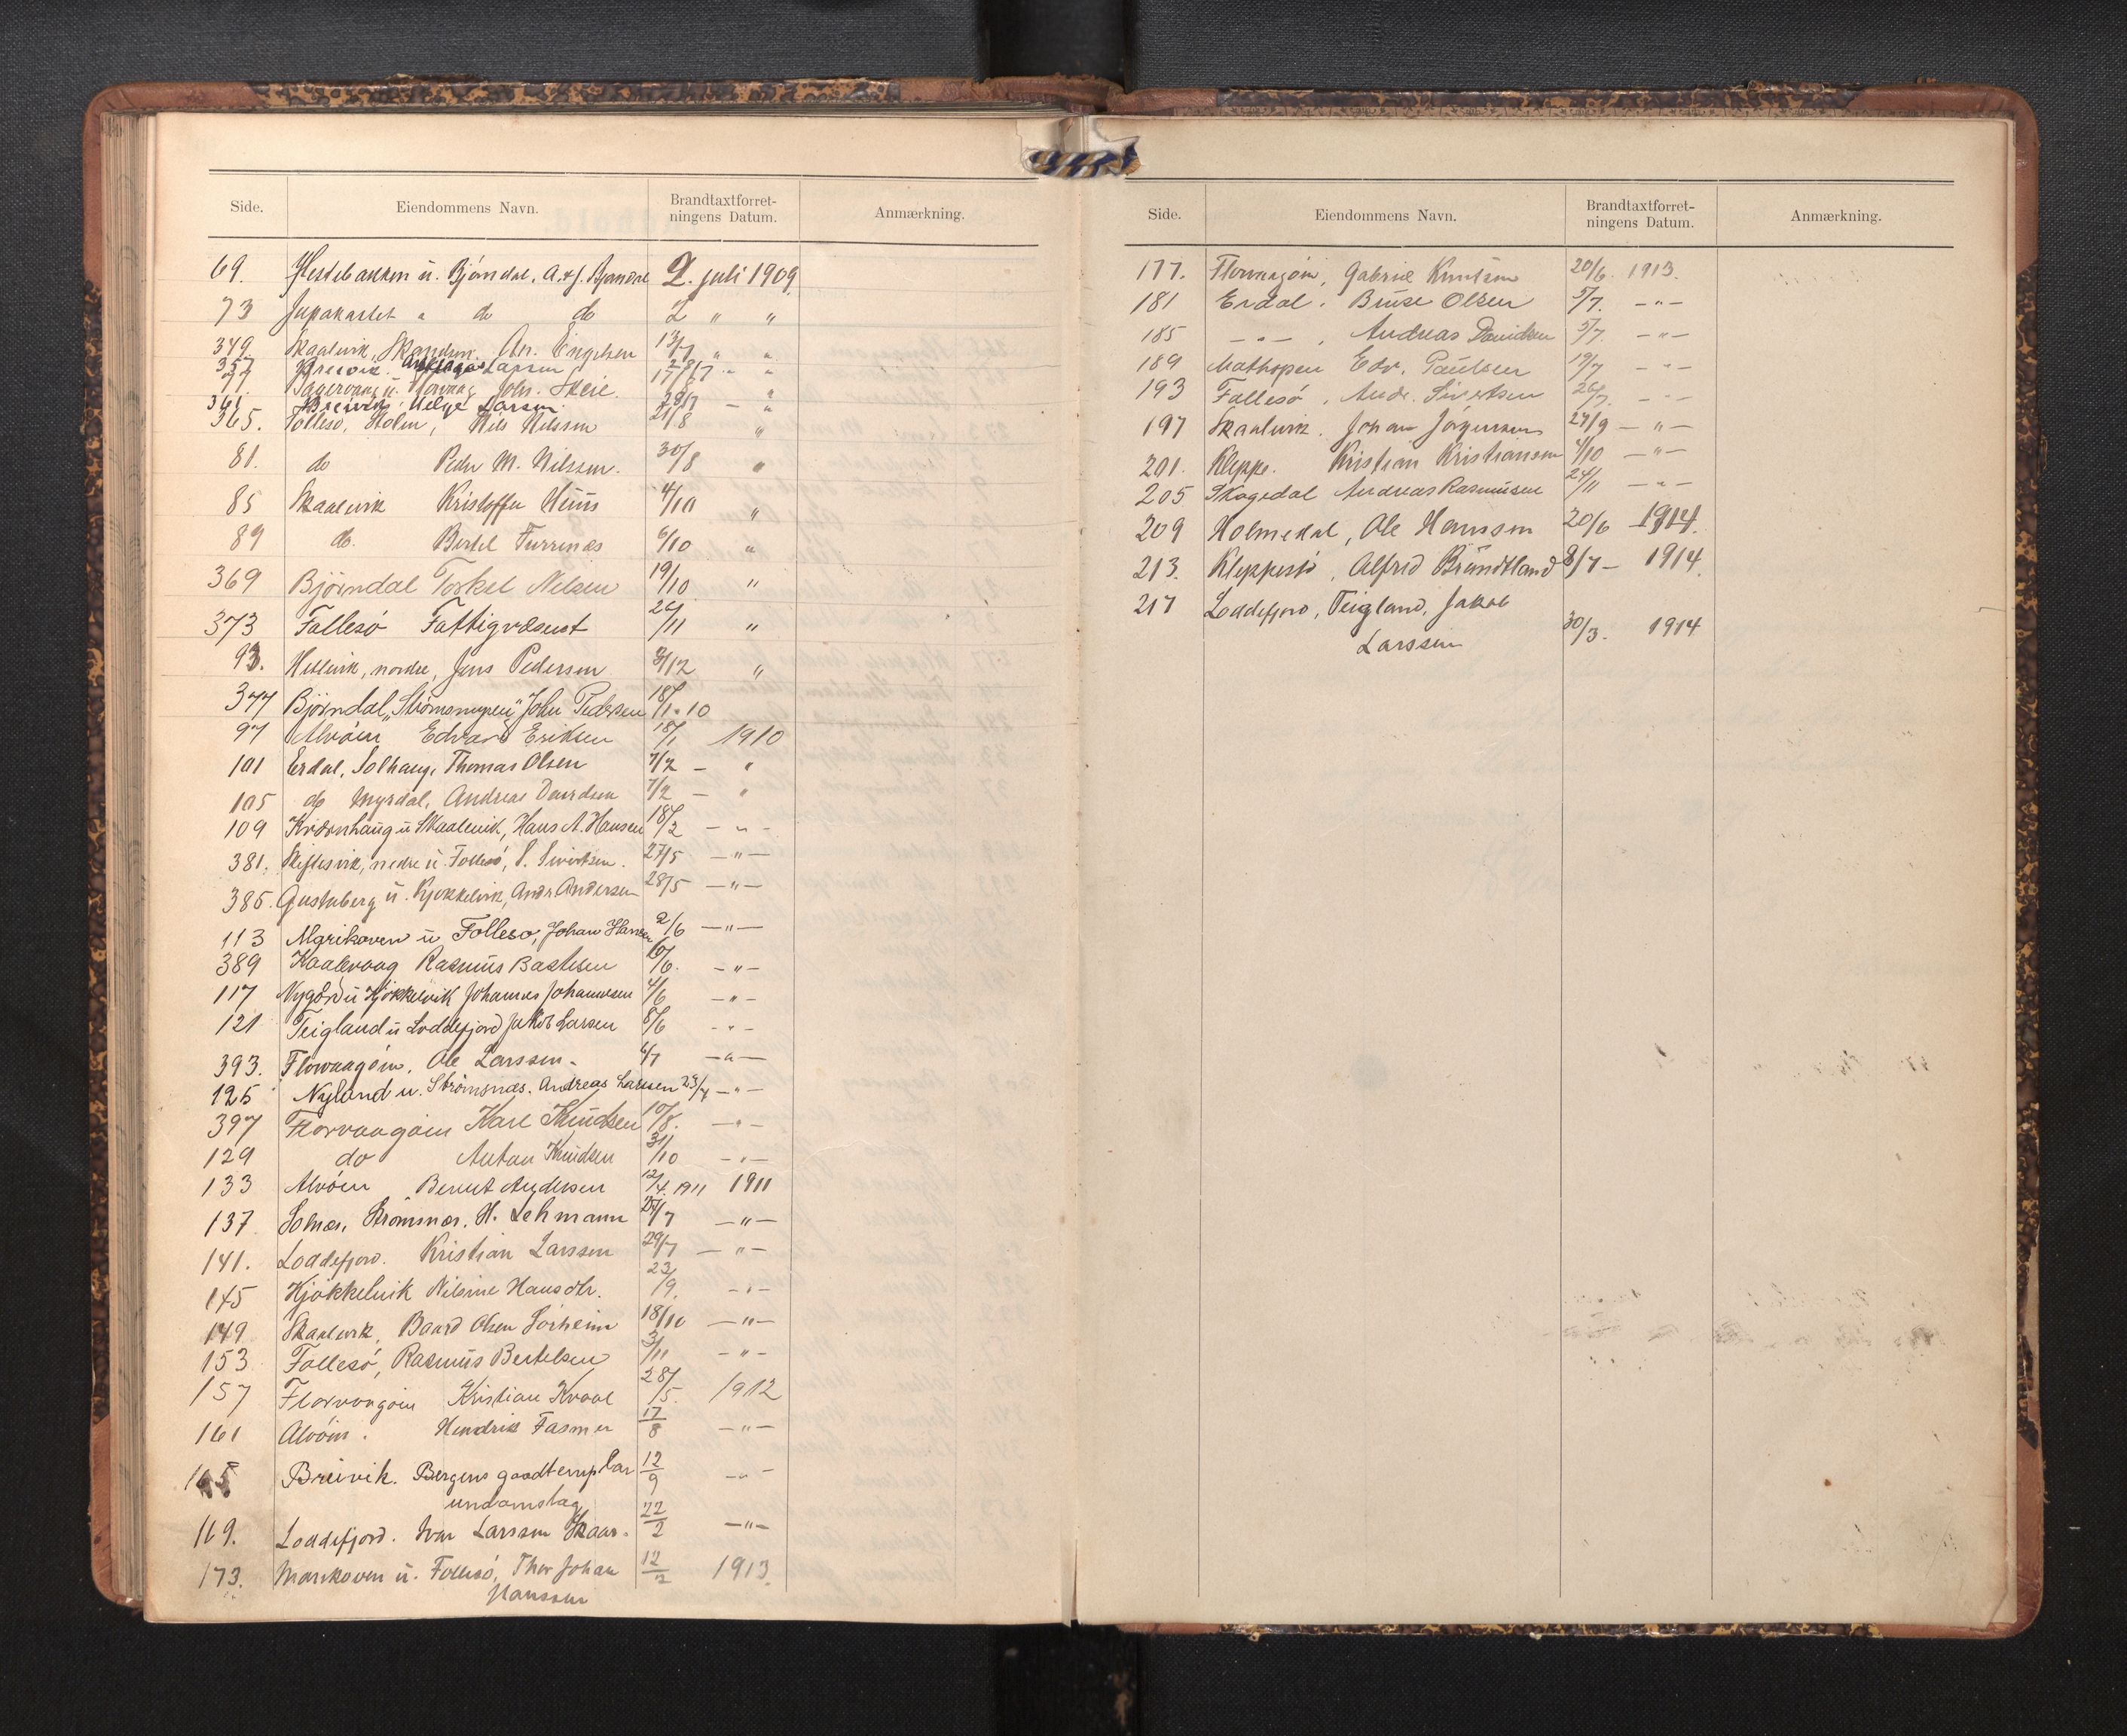 Side. Eiendommens Navn. Brandtaxtforret-ningens Datum. Anmærkning.
69. Hestebakken u. Bjørndal, A. & J. Bjørndal 2. juli 1909.
73 do do 2 " "
349. Skaalevik, An. Engelsen 13/7 " "
357 Breivik. Larsen 23/7 " "
77. u. Florvaag Johs. Skeie. 17/7 "
361 Breivik, Helge Larsen 28/7 — "
365. Follesø, Holm, Nils Nilssen 21/8 "
81. do Peder M. Nilssen. 30/8 "
85 Skaalevik Kristoffer Huus 4/10 "
89 do. Bertel Turrinæs 6/10 "
369 Bjørndal Torkel Nelsen 19/10 "
373 Follesø Fattigvæsenet 26/11 "
93. Hellevik, nordre, Jens Pedersen /12 "
377 Bjørndal, "Strømsnypen" John Pedersen 18/1-10
97 Alvøen Edvard Eriksen 18/1 1910
101 Erdal, Solhaug, Thomas Olsen 7/2 — "
105 do Myrdal, Andreas Davidsen 7/2 — "
109 Kvernhaug u Skaalevik, Hans A. Hansen 18/2 — " -
381. Skiftesvik, nedre u. Follesø, S. Sivertsen. 27/5 — " —
385. Gustuberg u. Kjøkkelvik, Andr. Andersen 28/5 — " —
113 Marikoven u Follesø, Johan Hansen 2/6 — " —
389 Kaalevaag Rasmus Bastesen 10/6. - " -
117 Nygård u Kjøkkelvik Johannes Johannesen 4/6 — " —
121 Teigland u Loddefjord Jakob Larsen 8/6 - " -
393. Florvaagøen, Ole Larssen - 6/7 — " —
125 Nyland u. Strømsnæs. Andreas Larssen 23/7 — " —
397 Florvaagøen Karl Knudsen 10/8. — " -
129 do Anton Knudsen 31/10 - " -
133 Alvøen Berent Andersen 12/4. 1911 1911
137 Solnæs, Strømsnæs, H. Lehmann 28/7 — " —
141. Loddefjord. Kristian Larssen 29/7 — " —
145 Kjøkkelvik Nilsine Hansdtr. 23/9. - " -
149 Skaalevik, Baard Olsen Sørheim 18/10 — " —
153 Follesø, Rasmus Bertelsen 3/11 - " -
157 Florvaagøen Kristian Kvaal 28/5. 1912
161 Alvøen. Hendrik Fasmer 17/8 — " —
165 Breivik. Bergens goodtemplar 12/9 — " -
undomslag
169. Loddefjord. Ivar Larssen Skaar. 22/2 — " —
173. Marikoven u. Follesø, Thor Johan 12/2 1913.
Hanssen
Side. Eiendommens Navn. Brandtaxtforret-ningens Datum. Anmærkning.
177. Florvaagøen, Gabriel Knutsen 20/6. 1913.
181 Erdal, Bruse Olsen 5/7. — " —
185 — " — , Andreas Davidsen 5/7. — " —
189 Mathopen Edv. Paulsen 19/7 - " -
193 Follesø, Andr. Sivertsen 26/7. - " -
197 Skaalevik. Johan Jørgensen 27/9 — " —
201. Kleppe. Kristian Kristiansen 4/10 — " —
205 Skogedal Andreas Rasmusen 24/11 — " —
209 Holmedal, Ole Hanssen 20/6 1914.
213. Kleppestø, Alfred Brundtland 8/7 — 1914.
217 Loddefjord, Teigland, Jakob
Larssen 30/3. 1914